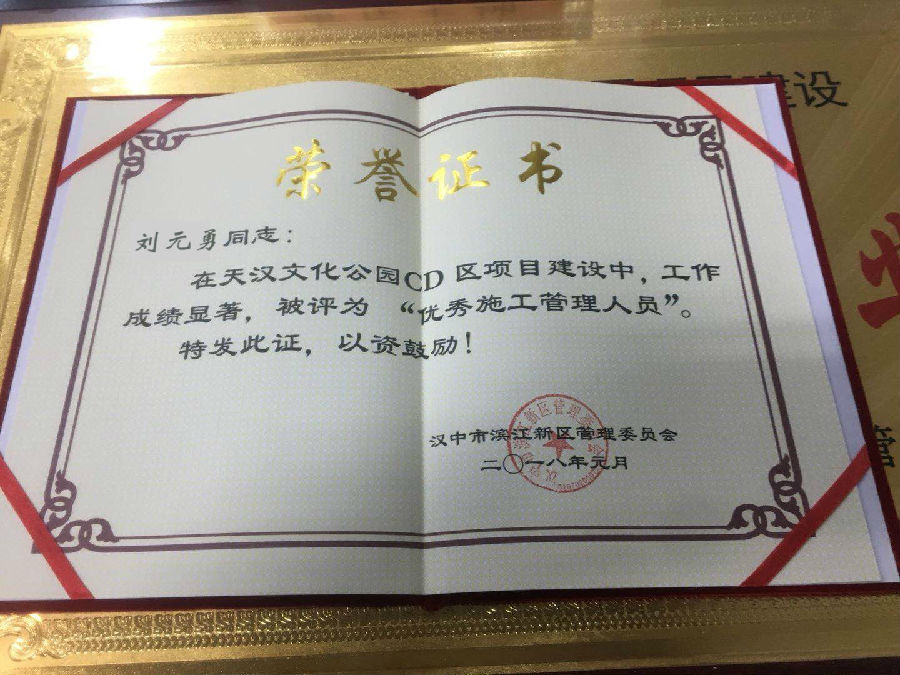 建设
荣誉证书
刘元勇同志：
在天汉文化公园CD区项目建设中，工作
成绩显著，被评为“优秀施工管理人员”。
特发此证，以资鼓励！
汉中市滨江新区管理委员会
二〇一八年元月